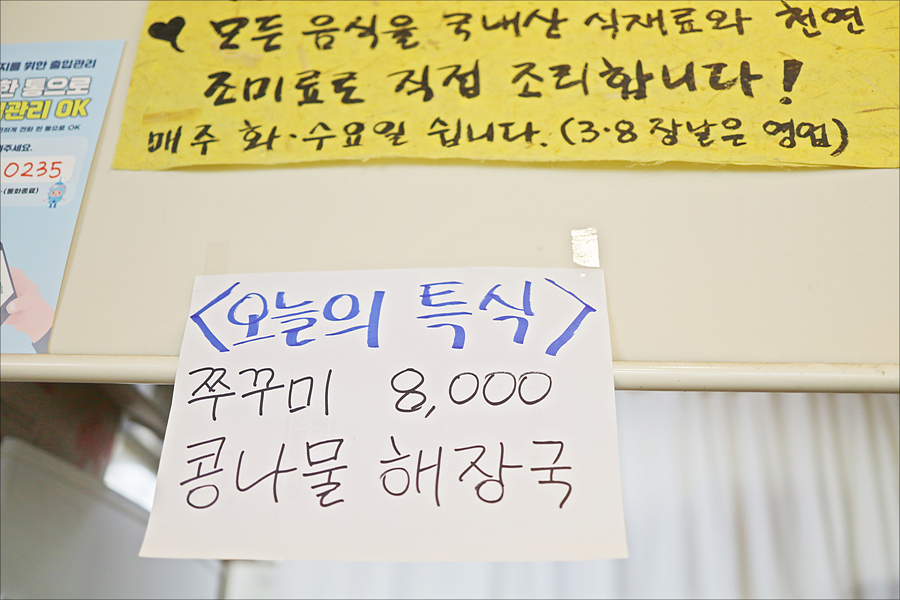 ♥ 모든 음식을 국내산 식재료와 천연
조미료로 직접 조리합니다!
매주 화·수요일 쉽니다. (3·8장날은 영업)
지를 위한 출입관리
한 통으로
관리 OK
전화 한 통으로 OK
주세요.
0235
(통화종료)
<오늘의 특식>
쭈꾸미 8,000
콩나물 해장국